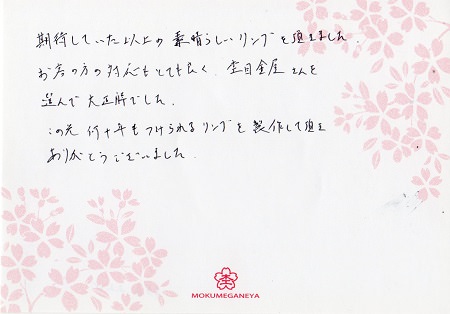 期待していた以上の素晴らしいリングを頂きました。
お店の方の対応もとても良く、杢目金屋さんを
選んで大正解でした。
この先何十年もつけられるリングを製作して頂き
ありがとうございました。
MOKUMEGANEYA